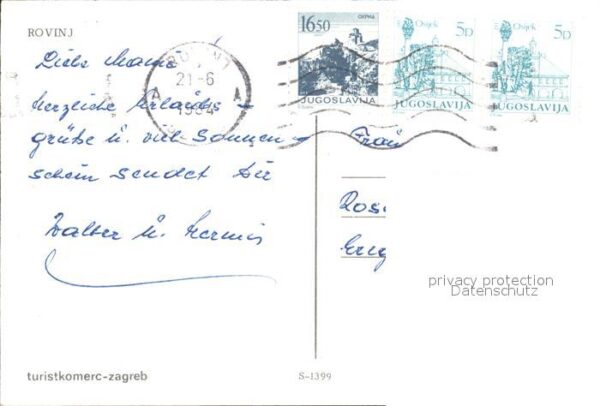 ROVINJ
Liebe Mama
herzliche Urlaubs-
grüße u. viel Sonnen-
schein sendet Dir
Walter u.
21-6
1984
A A
16.50
JUGOSLAVIJA
Osijek 5D
JUGOSLAVIJA
Osijek 5D
JUGOSLAVIJA
Frau
Ros
privacy protection
Datenschutz
turistkomerc-zagreb
S-1399